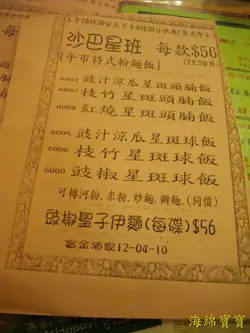 上午10時30分至下午4時30分供應(售完即止)
沙巴星班 每款$56
(午市特式粉麵飯)
6001 豉汁涼瓜星斑頭腩飯
6002 枝竹星斑頭腩飯
6004 紅燒星斑頭腩飯
6005 豉汁涼瓜星斑球飯
6006 枝竹星斑球飯
6008 豉椒星斑球飯
可轉河粉,米粉,炒麵,瀨麵,(同價)
豉椒聖子伊麵(每碟)$56
富金酒家12-04-10
海綿寶寶